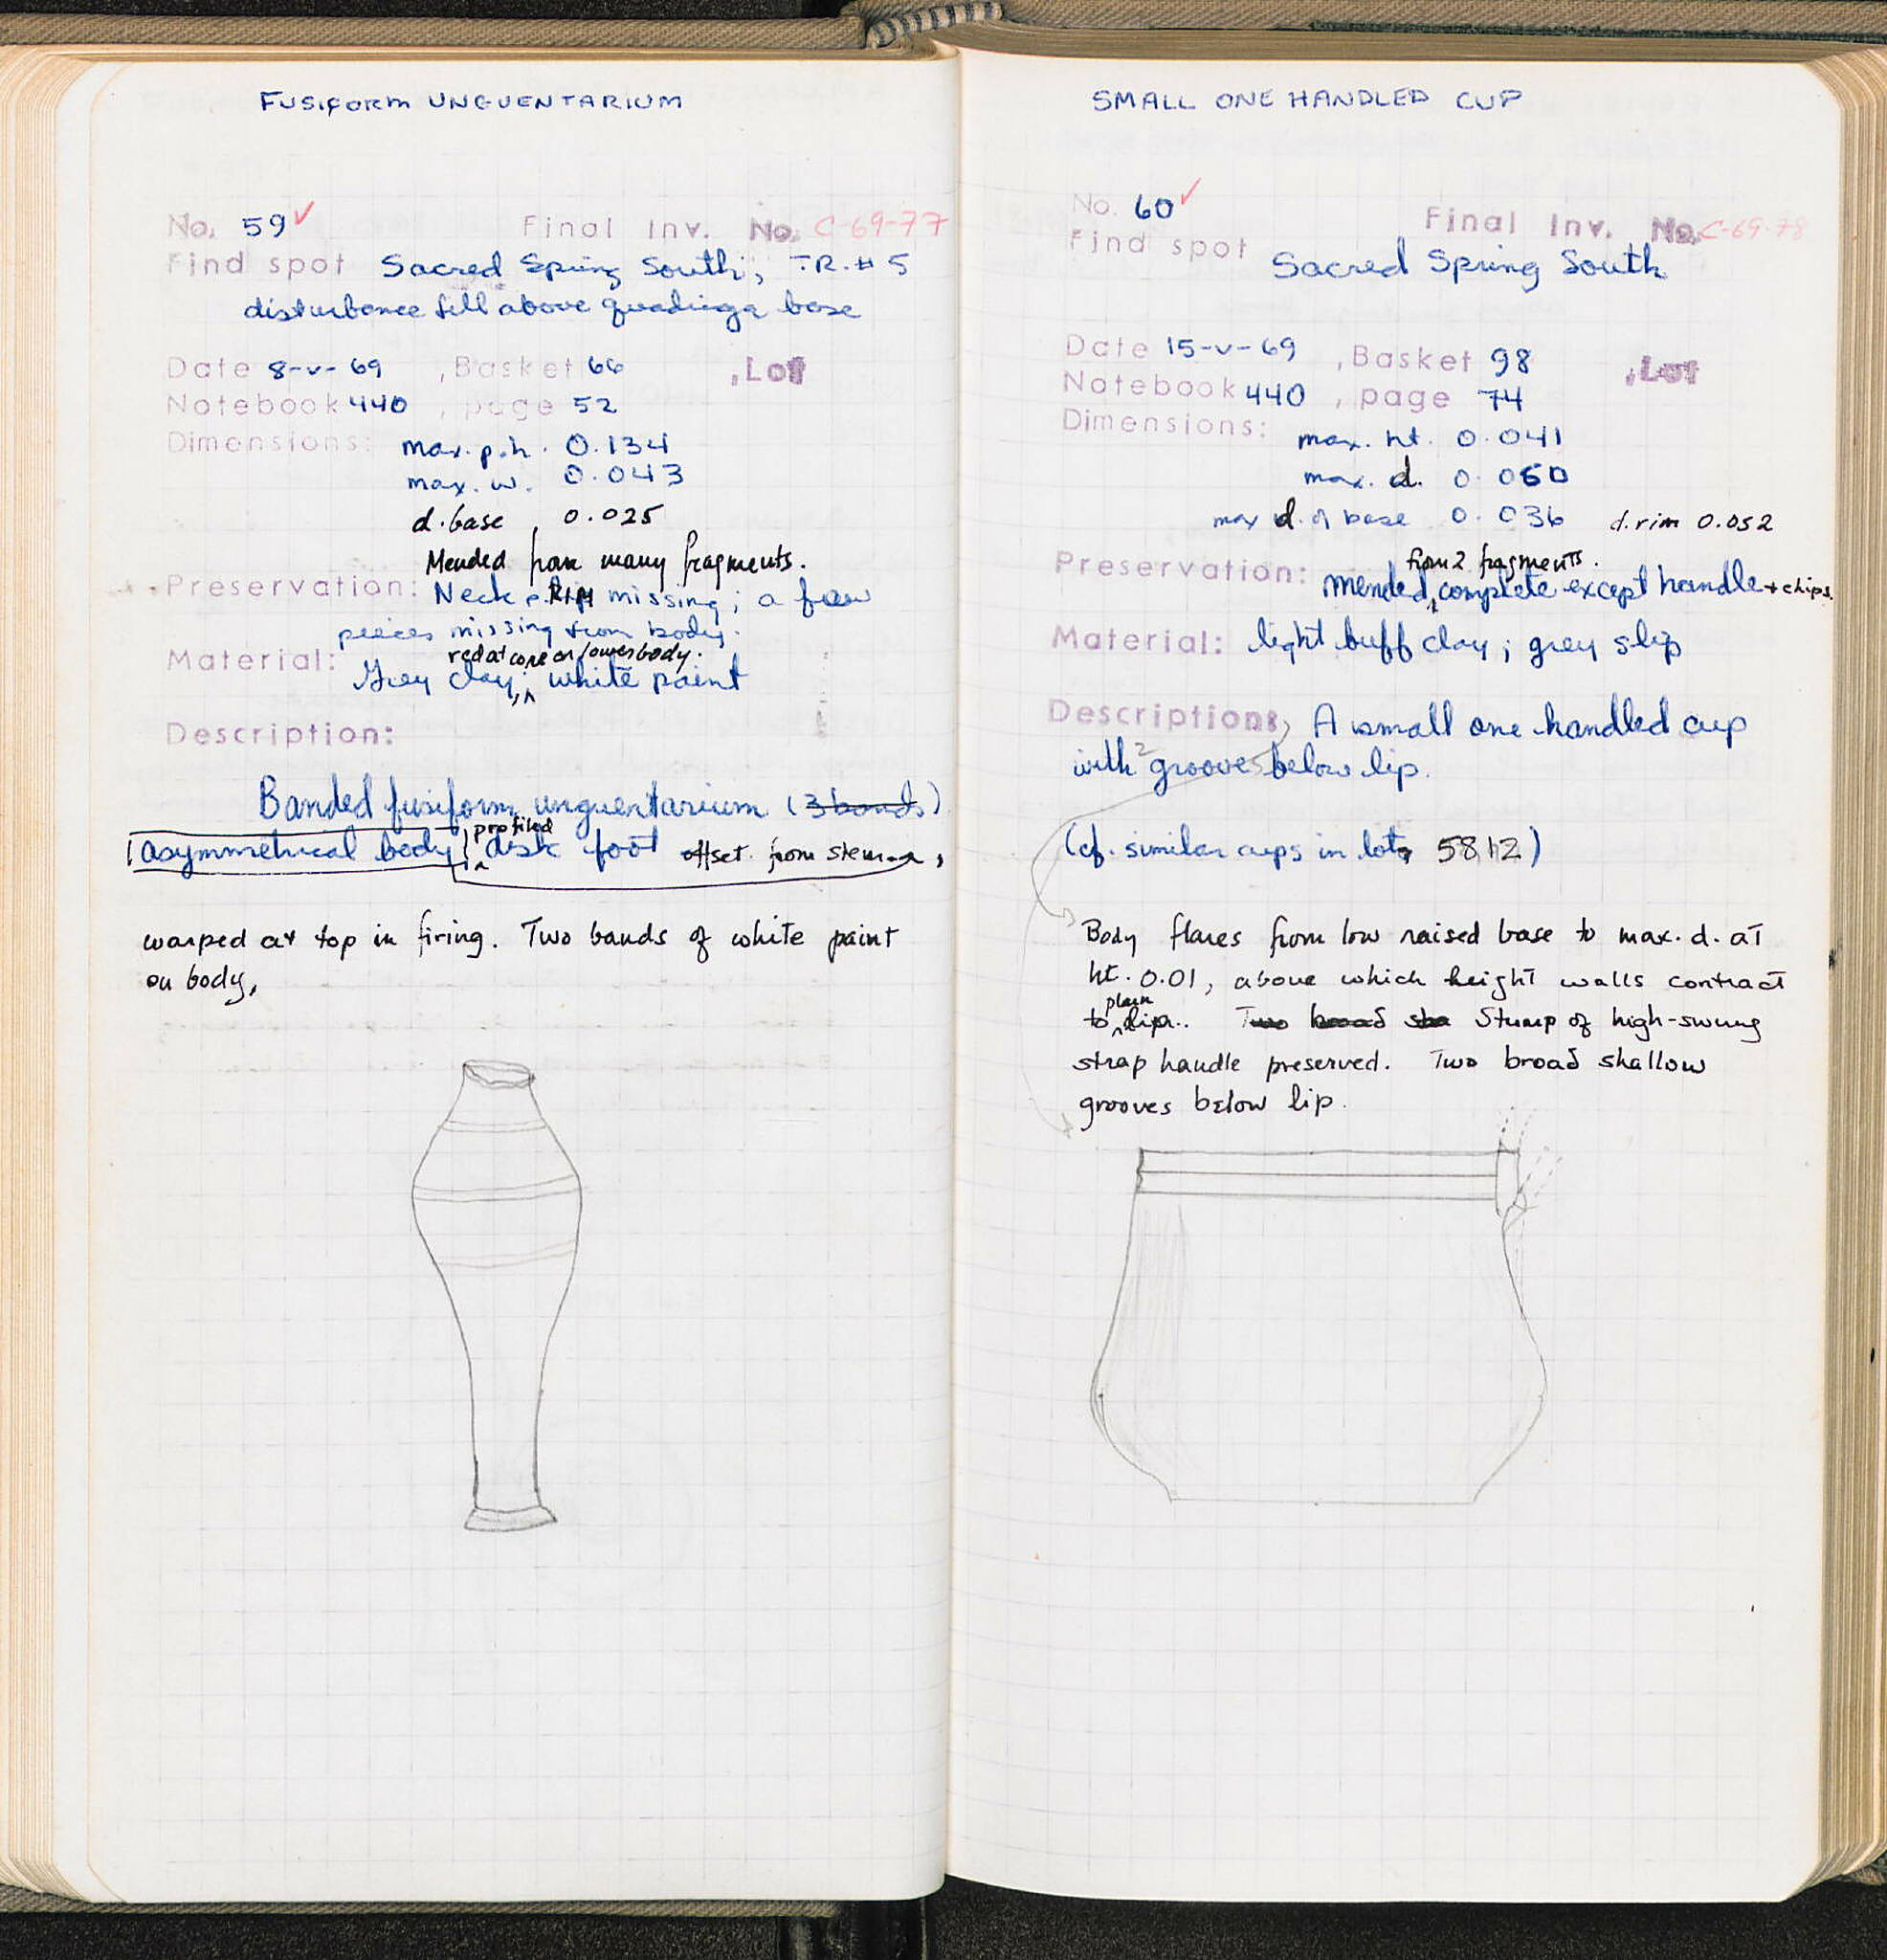 FUSIFORM UNGUENTARIUM
No. 59✓ Final Inv. No. C-69-77
Find spot Sacred Spring South, TR. # 5
disturbance fill above quadriga base
Date 8-V-69 , Basket 66 , Lot
Notebook 440 , page 52
Dimensions: max. p.h. 0.134
max. w. 0.043
d. base , 0.025
Mended from many fragments.
Preservation: Neck & RIM missing; a few
peices missing from body.
red at core on lower body.
Material: Grey clay, ^ white paint
Description:
Banded fusiform unguentarium (3 bands)
profiled
(asymmetrical body) ^ disk foot offset from stem,
warped at top in firing. Two bands of white paint
on body,
SMALL ONE HANDLED CUP
No. 60✓ Final Inv. No. C-69-78
Find spot Sacred Spring South
Date 15-V-69 , Basket 98 , Lot
Notebook 440 , page 74
Dimensions: max. ht. 0.041
max. d. 0.060
max d. of base 0.036 d. rim 0.052
from 2 fragments.
Preservation: mended, ^ complete except handle + chips.
Material: light buff clay; grey slip
Description: A small one-handled cup
with 2 grooves below lip.
(cf. similar cups in lot 5812)
Body flares from low raised base to max. d. at
ht. 0.01, above which height walls contract
plain
to ^ lip. Two broad sha Stump of high-swung
strap handle preserved. Two broad shallow
grooves below lip.